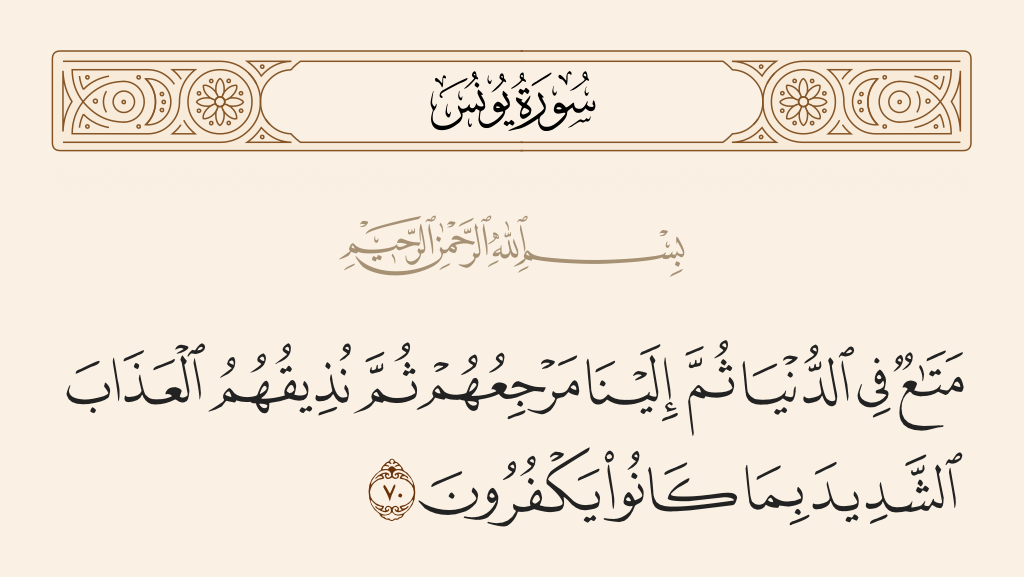 سُورَةُ يُونُسَ
بِسْمِ ٱللَّهِ ٱلرَّحْمَٰنِ ٱلرَّحِيمِ
مَتَٰعٌ فِى ٱلدُّنْيَا ثُمَّ إِلَيْنَا مَرْجِعُهُمْ ثُمَّ نُذِيقُهُمُ ٱلْعَذَابَ
ٱلشَّدِيدَ بِمَا كَانُوا۟ يَكْفُرُونَ ٧٠